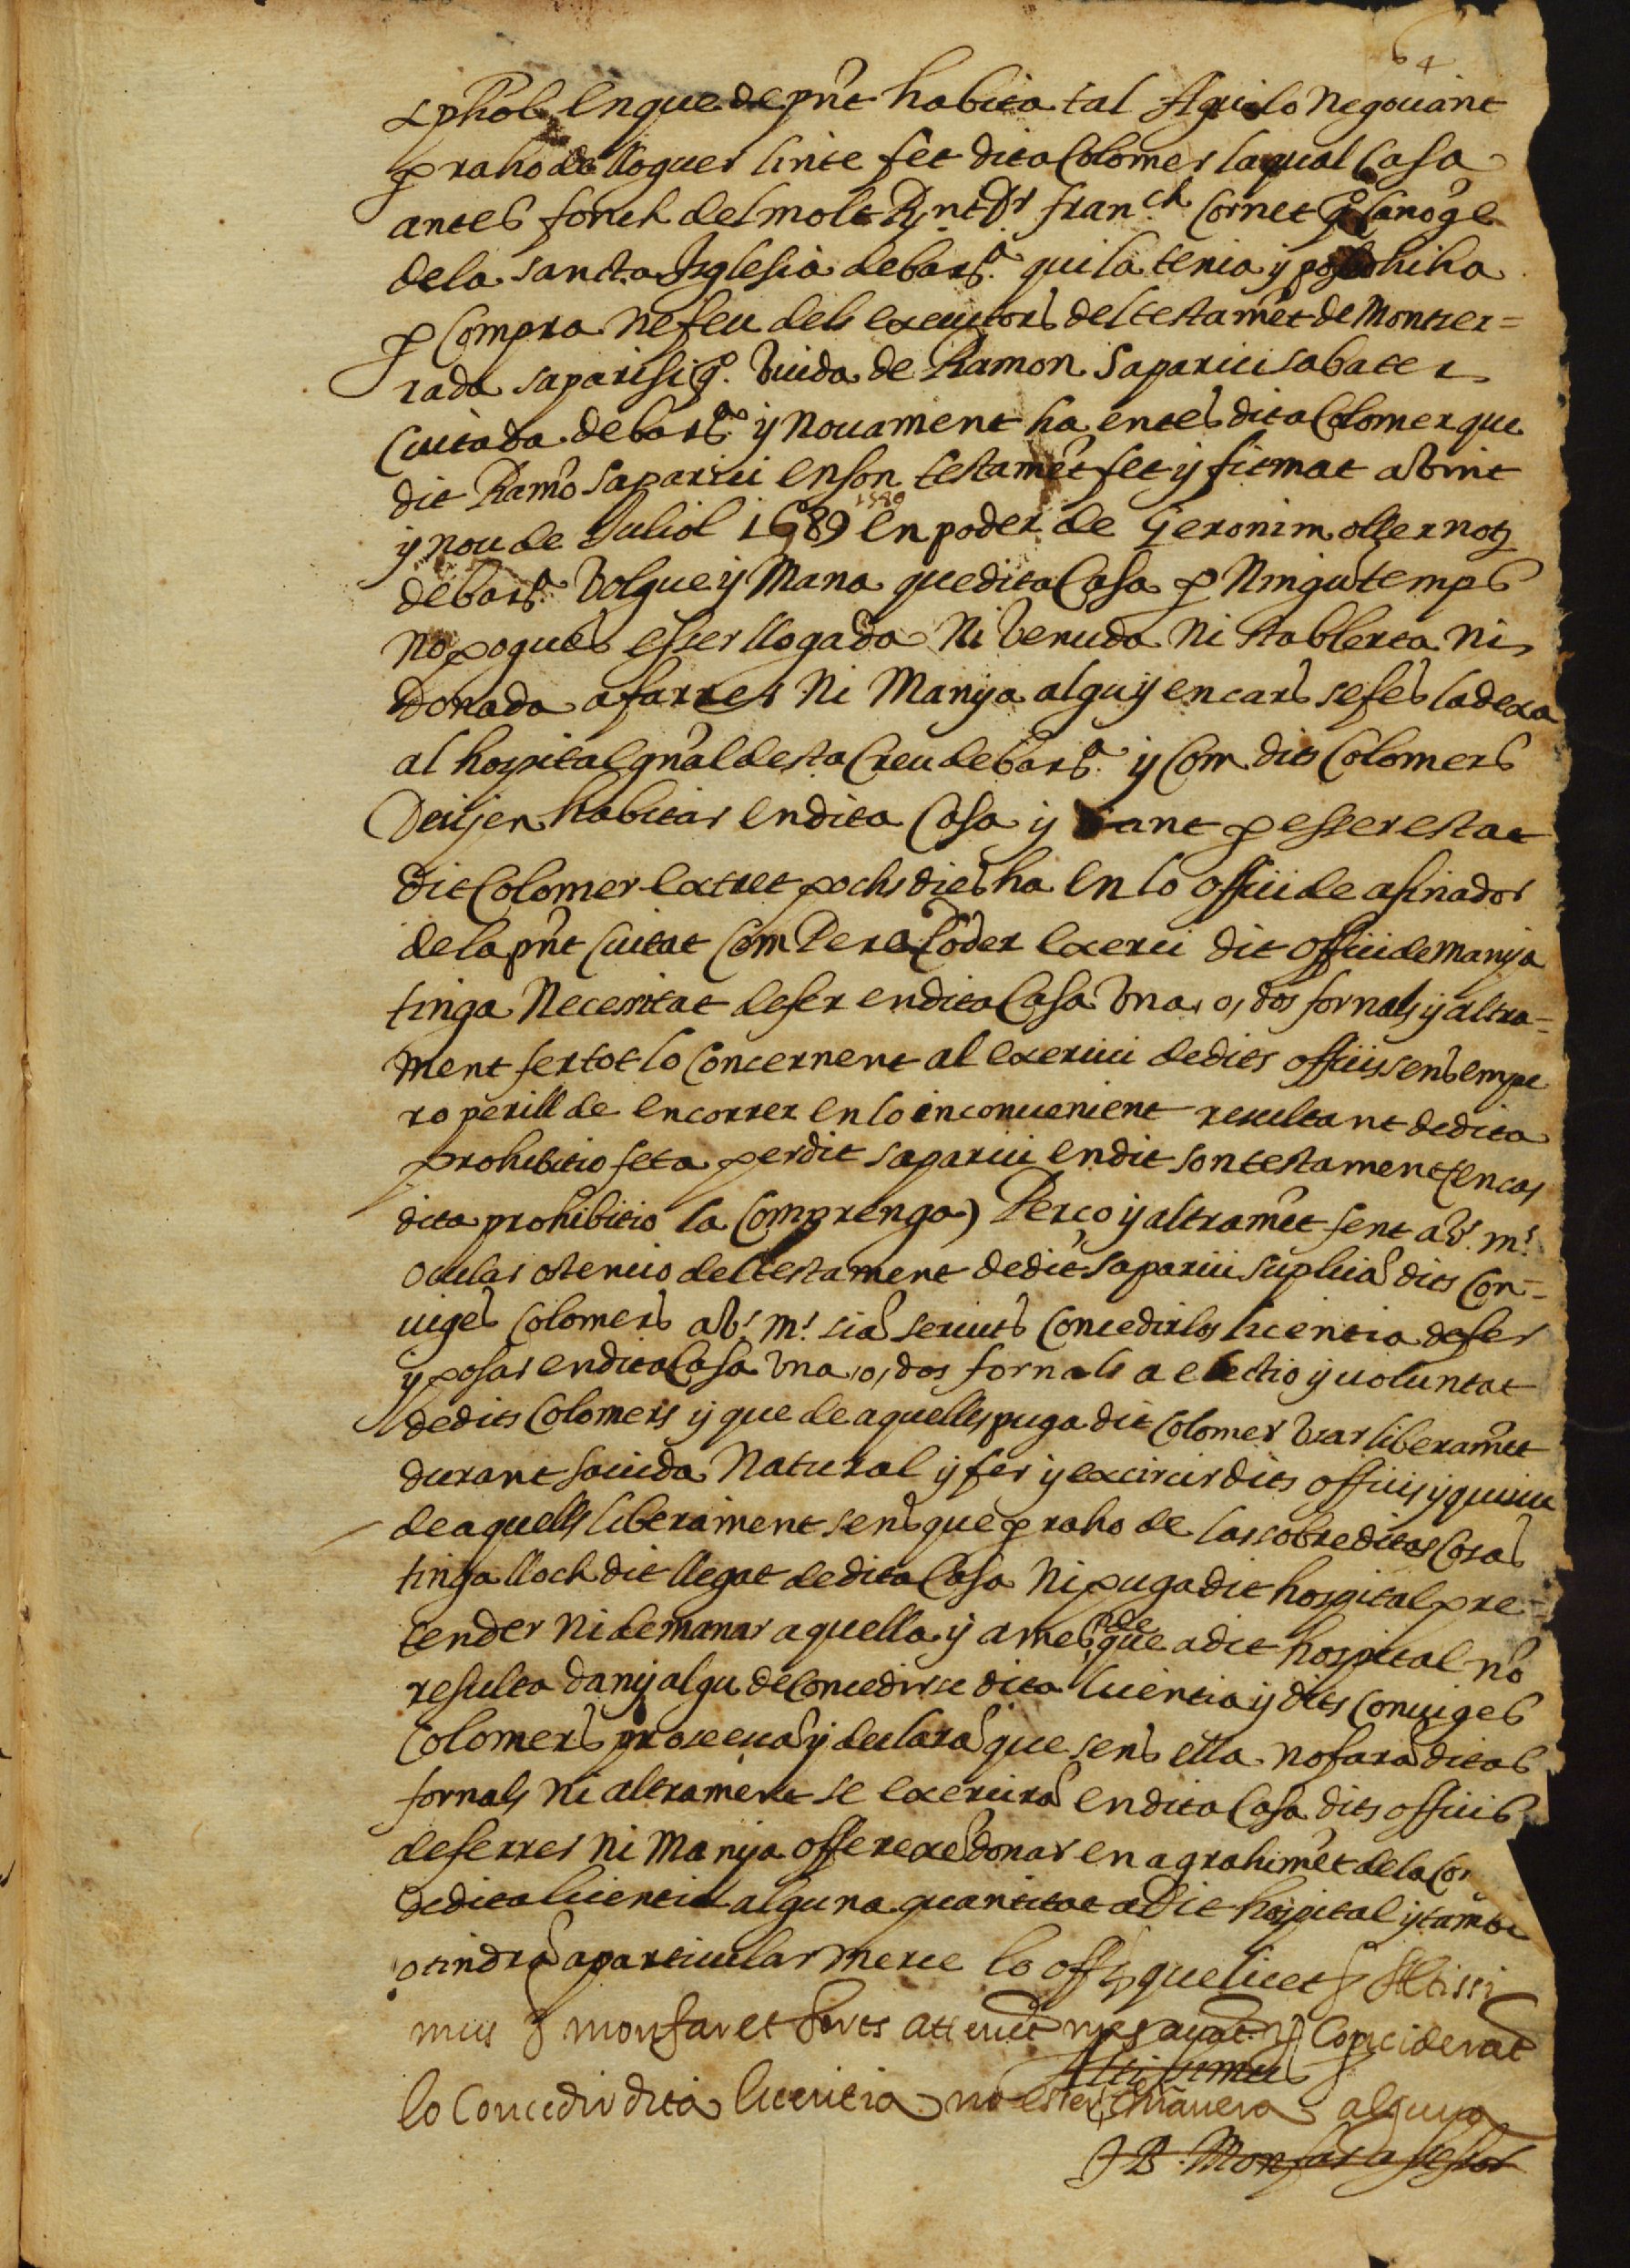 64
xpħol. En que de pñt habita tal Aguilo Negociant
p raho de lloguer li n te fet dita Colomer laqual Casa
antes fonch del molt R.nt Dr. fran.ch Cornet q.º Canoge
de la sancta Iglesia de bar.ª qui la tenia y possehiha
p Compra ne feu dels executors del testamēt de Montser=
rada saparisi q.º viuda de Ramon Saparici sabater
Ciutada de bar.ª y Nouament ha entes dita Colomer que
dit Ramō saparici en son testamēt fet y firmat a vint
y nou de Juliol 1589 1589 en poder de Geronim oller not.
de bar.ª Volgue y Mana que dita Casa p Ningū temps
no pogues esser llogada Ni Venuda Ni stablerta Ni
donada a farrer Ni Manya algu y en cars se fes la dexa
al hospital gñal de sta Creu de bar.ª y Com dits Colomers
Desijen habitar en dita Casa y tant p esser estat
dit Colomer extret pochs dies ha en lo offici de afinador
de la pñt Ciutat Com Pera Poder exerci dit offici de manya
tinga Necessitat de fer en dita Casa Vna, o, dos fornals y altra=
ment fer tot lo Concernent al exercici de dits officis sens empe
ro perill de encorrer en lo inconuenient resultant de dita
prohibitio feta per dit saparici en dit son testament (en cas
dita prohibitio la Comprenga) Perço y altramēt sent a V.s m.s
ocular ostencio del testament de dit saparici suplicā dits Con=
iuges Colomers a V.s m.s siā seruits Concedirlos licentia de fer
y posar en dita Casa Vna, o, dos fornals a electio y voluntat
de dits Colomers y que de aquelles puga dit Colomer Vsar liberamēt
durant sa vida Natural y fer y exircir dits officis y quiscu
de aquells liberament sens que p raho de las sobreditas Cosas
tinga lloch dit llegat de dita Casa Ni puga dit hospital pre=
tender Ni demanar aquella y a mes de que a dit hospital no
resulta dany algu de Concedirse dita licentia y dits Coniuges
Colomers proceeuā y declarā que sens ella no farā ditas
fornals Ni altrament se exercirā en dita Casa dits officis
de ferrer Ni Manya offerexē donar en agrahimēt de la Con
de dita licentia alguna quantitat a dit hospital y tambe
o tindrā a particular merce lo off. que licet Altissi
mus
Altissimus
lo Concedir dita licentia no esser en manera alguna
J B Monfar assessor